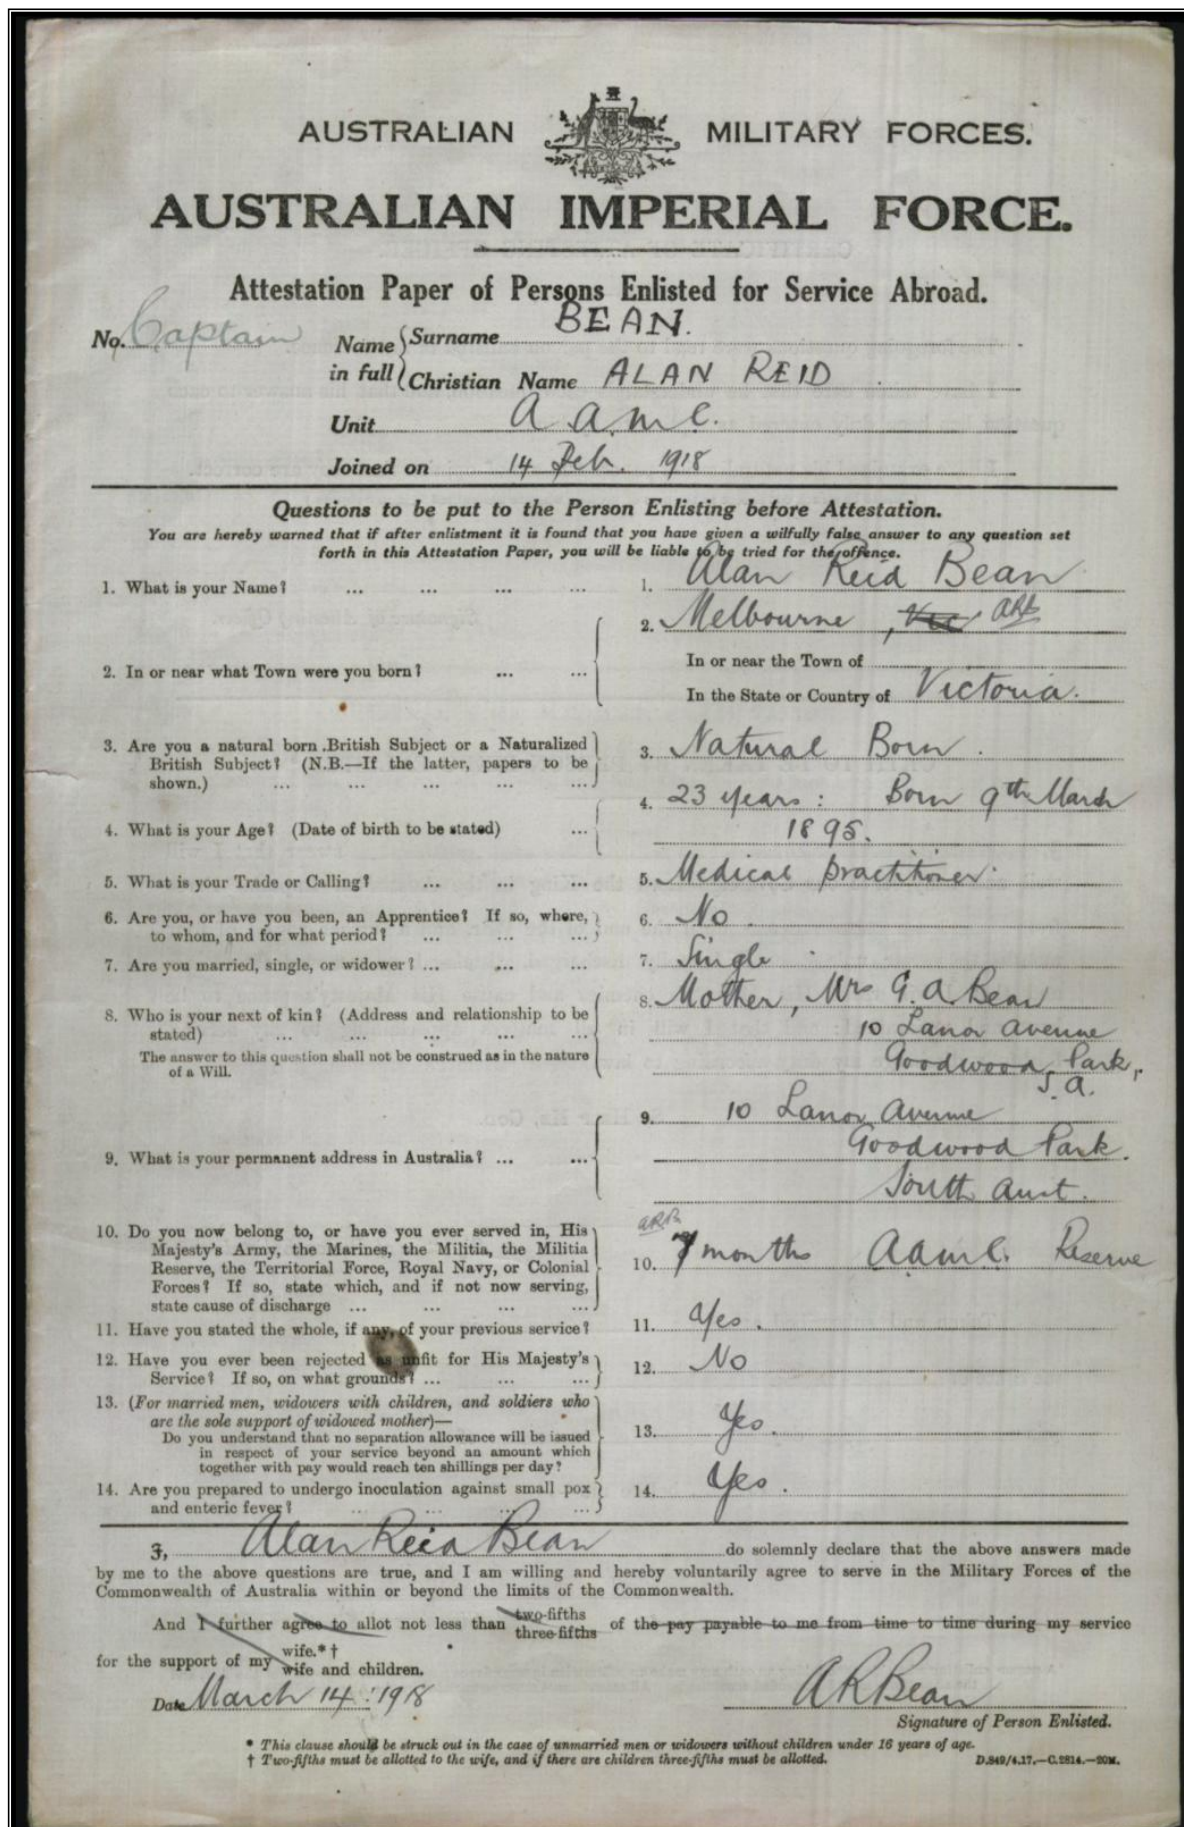 AUSTRALIAN MILITARY FORCES.
AUSTRALIAN IMPERIAL FORCE.
Attestation Paper of Persons Enlisted for Service Abroad.
No. Captain
Name in full { Surname BEAN.
Christian Name ALAN REID
Unit A.A.M.C.
Joined on 14 Feb. 1918
Questions to be put to the Person Enlisting before Attestation.
You are hereby warned that if after enlistment it is found that you have given a wilfully false answer to any question set
forth in this Attestation Paper, you will be liable to be tried for the offence.
1. What is your Name? ... ... ... ... 1. Alan Reid Bean
2. Melbourne, Vic ARB
2. In or near what Town were you born? ... ... In or near the Town of
In the State or Country of Victoria.
3. Are you a natural born British Subject or a Naturalized
British Subject? (N.B.—If the latter, papers to be
shown.) ... ... ... ... ...
3. Natural Born.
4. What is your Age? (Date of birth to be stated) ...
4. 23 years: Born 9th March
1895.
5. What is your Trade or Calling? ... ... ... 5. Medical Practitioner.
6. Are you, or have you been, an Apprentice? If so, where,
to whom, and for what period? ... ... ...
6. No.
7. Are you married, single, or widower? ... ... ... 7. Single
8. Who is your next of kin? (Address and relationship to be
stated) ... ... ... ... ...
The answer to this question shall not be construed as in the nature
of a Will.
8. Mother, Mrs G. A. Bean
10 Lanor Avenue
Goodwood Park,
S.A.
9. What is your permanent address in Australia? ... ...
9. 10 Lanor Avenue
Goodwood Park.
South Aust.
10. Do you now belong to, or have you ever served in, His
Majesty's Army, the Marines, the Militia, the Militia
Reserve, the Territorial Force, Royal Navy, or Colonial
Forces? If so, state which, and if not now serving,
state cause of discharge ... ... ... ...
ARB
10. 7 months A.A.M.C. Reserve
11. Have you stated the whole, if any, of your previous service? 11. Yes.
12. Have you ever been rejected as unfit for His Majesty's
Service? If so, on what grounds? ... ... ...
12. No
13. (For married men, widowers with children, and soldiers who
are the sole support of widowed mother)—
Do you understand that no separation allowance will be issued
in respect of your service beyond an amount which
together with pay would reach ten shillings per day?
13. Yes.
14. Are you prepared to undergo inoculation against small pox
and enteric fever? ... ... ... ...
14. Yes.
I, Alan Reid Bean do solemnly declare that the above answers made
by me to the above questions are true, and I am willing and hereby voluntarily agree to serve in the Military Forces of the
Commonwealth of Australia within or beyond the limits of the Commonwealth.
And I further agree to allot not less than two-fifths three-fifths of the pay payable to me from time to time during my service
for the support of my wife.*† wife and children.
Date March 14: 1918
ARBean
Signature of Person Enlisted.
* This clause should be struck out in the case of unmarried men or widowers without children under 16 years of age.
† Two-fifths must be allotted to the wife, and if there are children three-fifths must be allotted.
D.849/4.17.—C.2814.—20M.